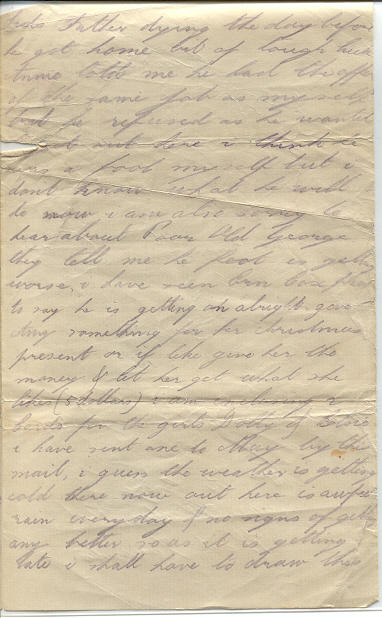 his Father dying the day before
he got home but of
told me he had the offer
of the same job as myself
but he refused as he wanted
out here i think he
was a fool myself but i
dont know what he will
do now i am also sorry to
hear about Poor Old George
they tell me he foot is getting
worse, i have seen
to say he is getting on alright
something for her christmas
present or if like give her the
money & let her get what she
likes (5 dollars) i am enclosing 2
cards for the girls Dolly &
i have sent one to May by this
mail, i guess the weather is getting
cold there now out here is awful
rain everyday & no signs of getting
any better so as it is getting
late i shall have to draw this